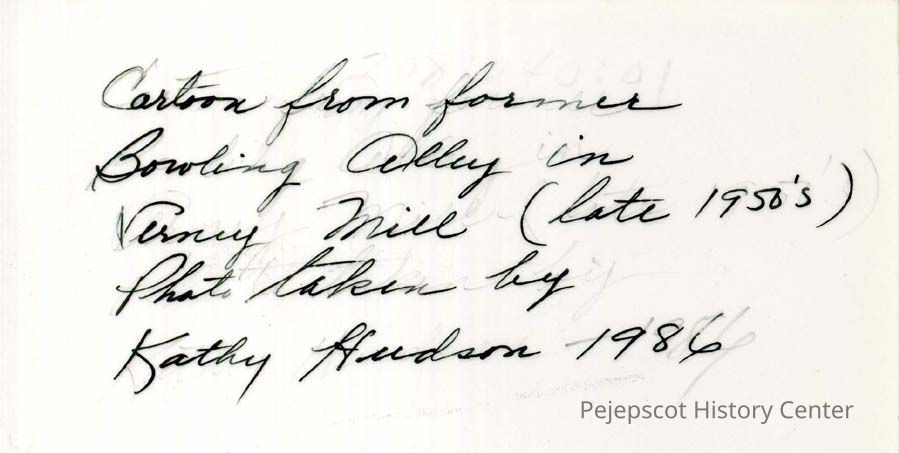 Cartoon from former
Bowling Alley in
Verney Mill (late 1950's)
Photo taken by
Kathy Hudson 1986
Pejepscot History Center